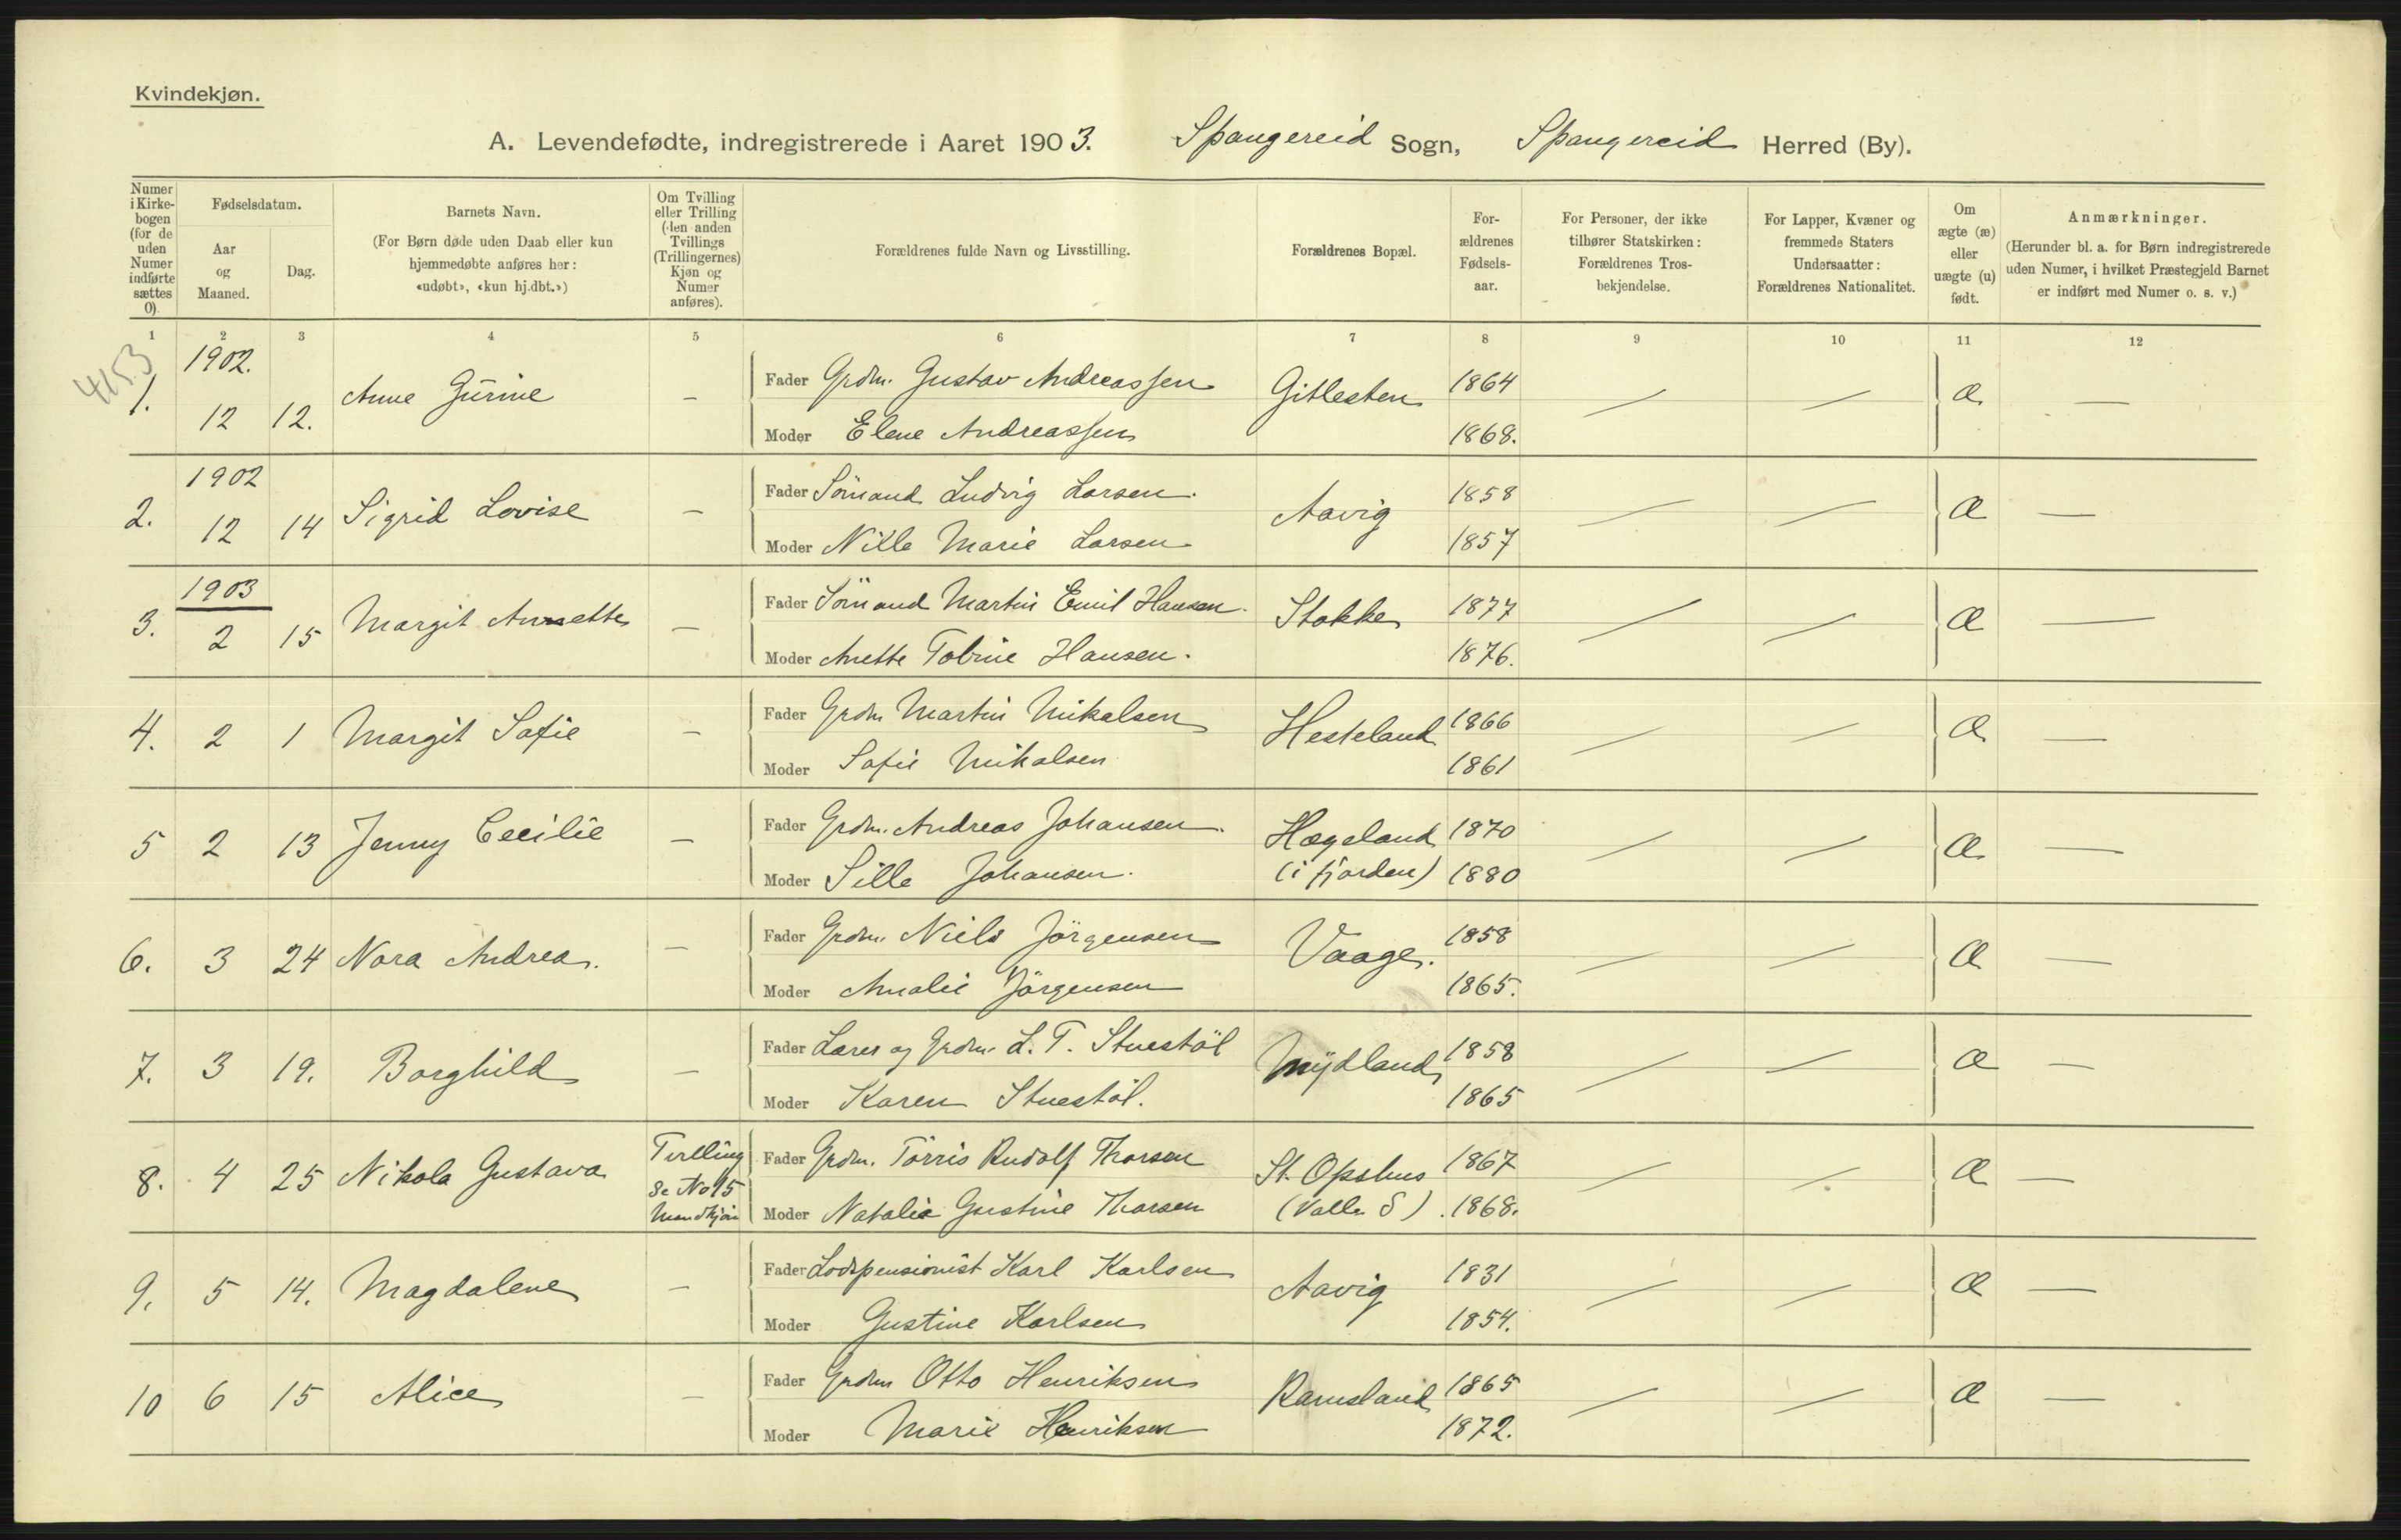 Kvindekjøn.
A. Levendefødte, indregistrerede i Aaret 1903. Spangereid Sogn, Spangereid Herred (By).
Numer i Kirkebogen (for de uden Numer indførte sættes 0)
Fødselsdatum.
Aar og Maaned.
Dag.
Barnets Navn.
(For Børn døde uden Daab eller kun hjemmedøbte anføres her: «udøbt», «kun hj.dbt.»)
Om Tvilling eller Trilling (den anden Tvillings (Trillingernes) Kjøn og Numer anføres).
Forældrenes fulde Navn og Livsstilling.
Forældrenes Bopæl.
Forældrenes Fødselsaar.
For Personer, der ikke tilhører Statskirken: Forældrenes Trosbekjendelse.
For Lapper, Kvæner og fremmede Staters Undersaatter: Forældrenes Nationalitet.
Om ægte (æ) eller uægte (u) født.
Anmærkninger.
(Herunder bl. a. for Børn indregistrerede uden Numer, i hvilket Præstegjeld Barnet er indført med Numer o. s. v.)
1 2 3 4 5 6 7 8 9 10 11 12
4153
1902.
1. 12 12. Anne Gurine — Fader Grdm. Gustav Andreassen Gitlesten 1864 — — æ —
Moder Elene Andreassen 1868.
1902
2. 12 14 Sigrid Lovise — Fader Sömand Ludvig Larsen. Aavig 1858 — — æ —
Moder Nille Marie Larsen 1857
1903
3. 2 15 Margit Annette — Fader Sömand Martin Emil Hansen. Stokke 1877 — — æ —
Moder Anette Tobine Hansen. 1876.
4. 2 1 Margit Sofie — Fader Grdm Martin Mikalsen Hesteland 1866 — — æ —
Moder Sofie Mikalsen 1861
5 2 13 Jenny Cecilie — Fader Grdm. Andreas Johansen. Hægeland 1870 — — æ —
Moder Sille Johansen. (i fjorden) 1880
6. 3 24 Nora Andrea. — Fader Grdm. Niels Jörgensen Vaage. 1858 — — æ —
Moder Amalie Jörgensen 1865.
7. 3 19. Borghild — Fader Lærer og Grdm. L. T. Stuestöl Mydland 1858 — — æ —
Moder Karen Stuestöl. 1865
8. 4 25 Nikola Gustava Tvilling Se No 15 Mandkjön Fader Grdm. Törris Rudolf Thorsen St. Opshus 1867 — — æ —
Moder Natalia Gustine Thorsen (Valle S) 1868.
9. 5 14. Magdalene — Fader Lodspensionist Karl Karlsen Aavig 1831 — — æ —
Moder Gustine Karlsen 1854.
10 6 15 Alice — Fader Grdm Otto Henriksen Ramsland 1865 — — æ —
Moder Marie Henriksen 1872.